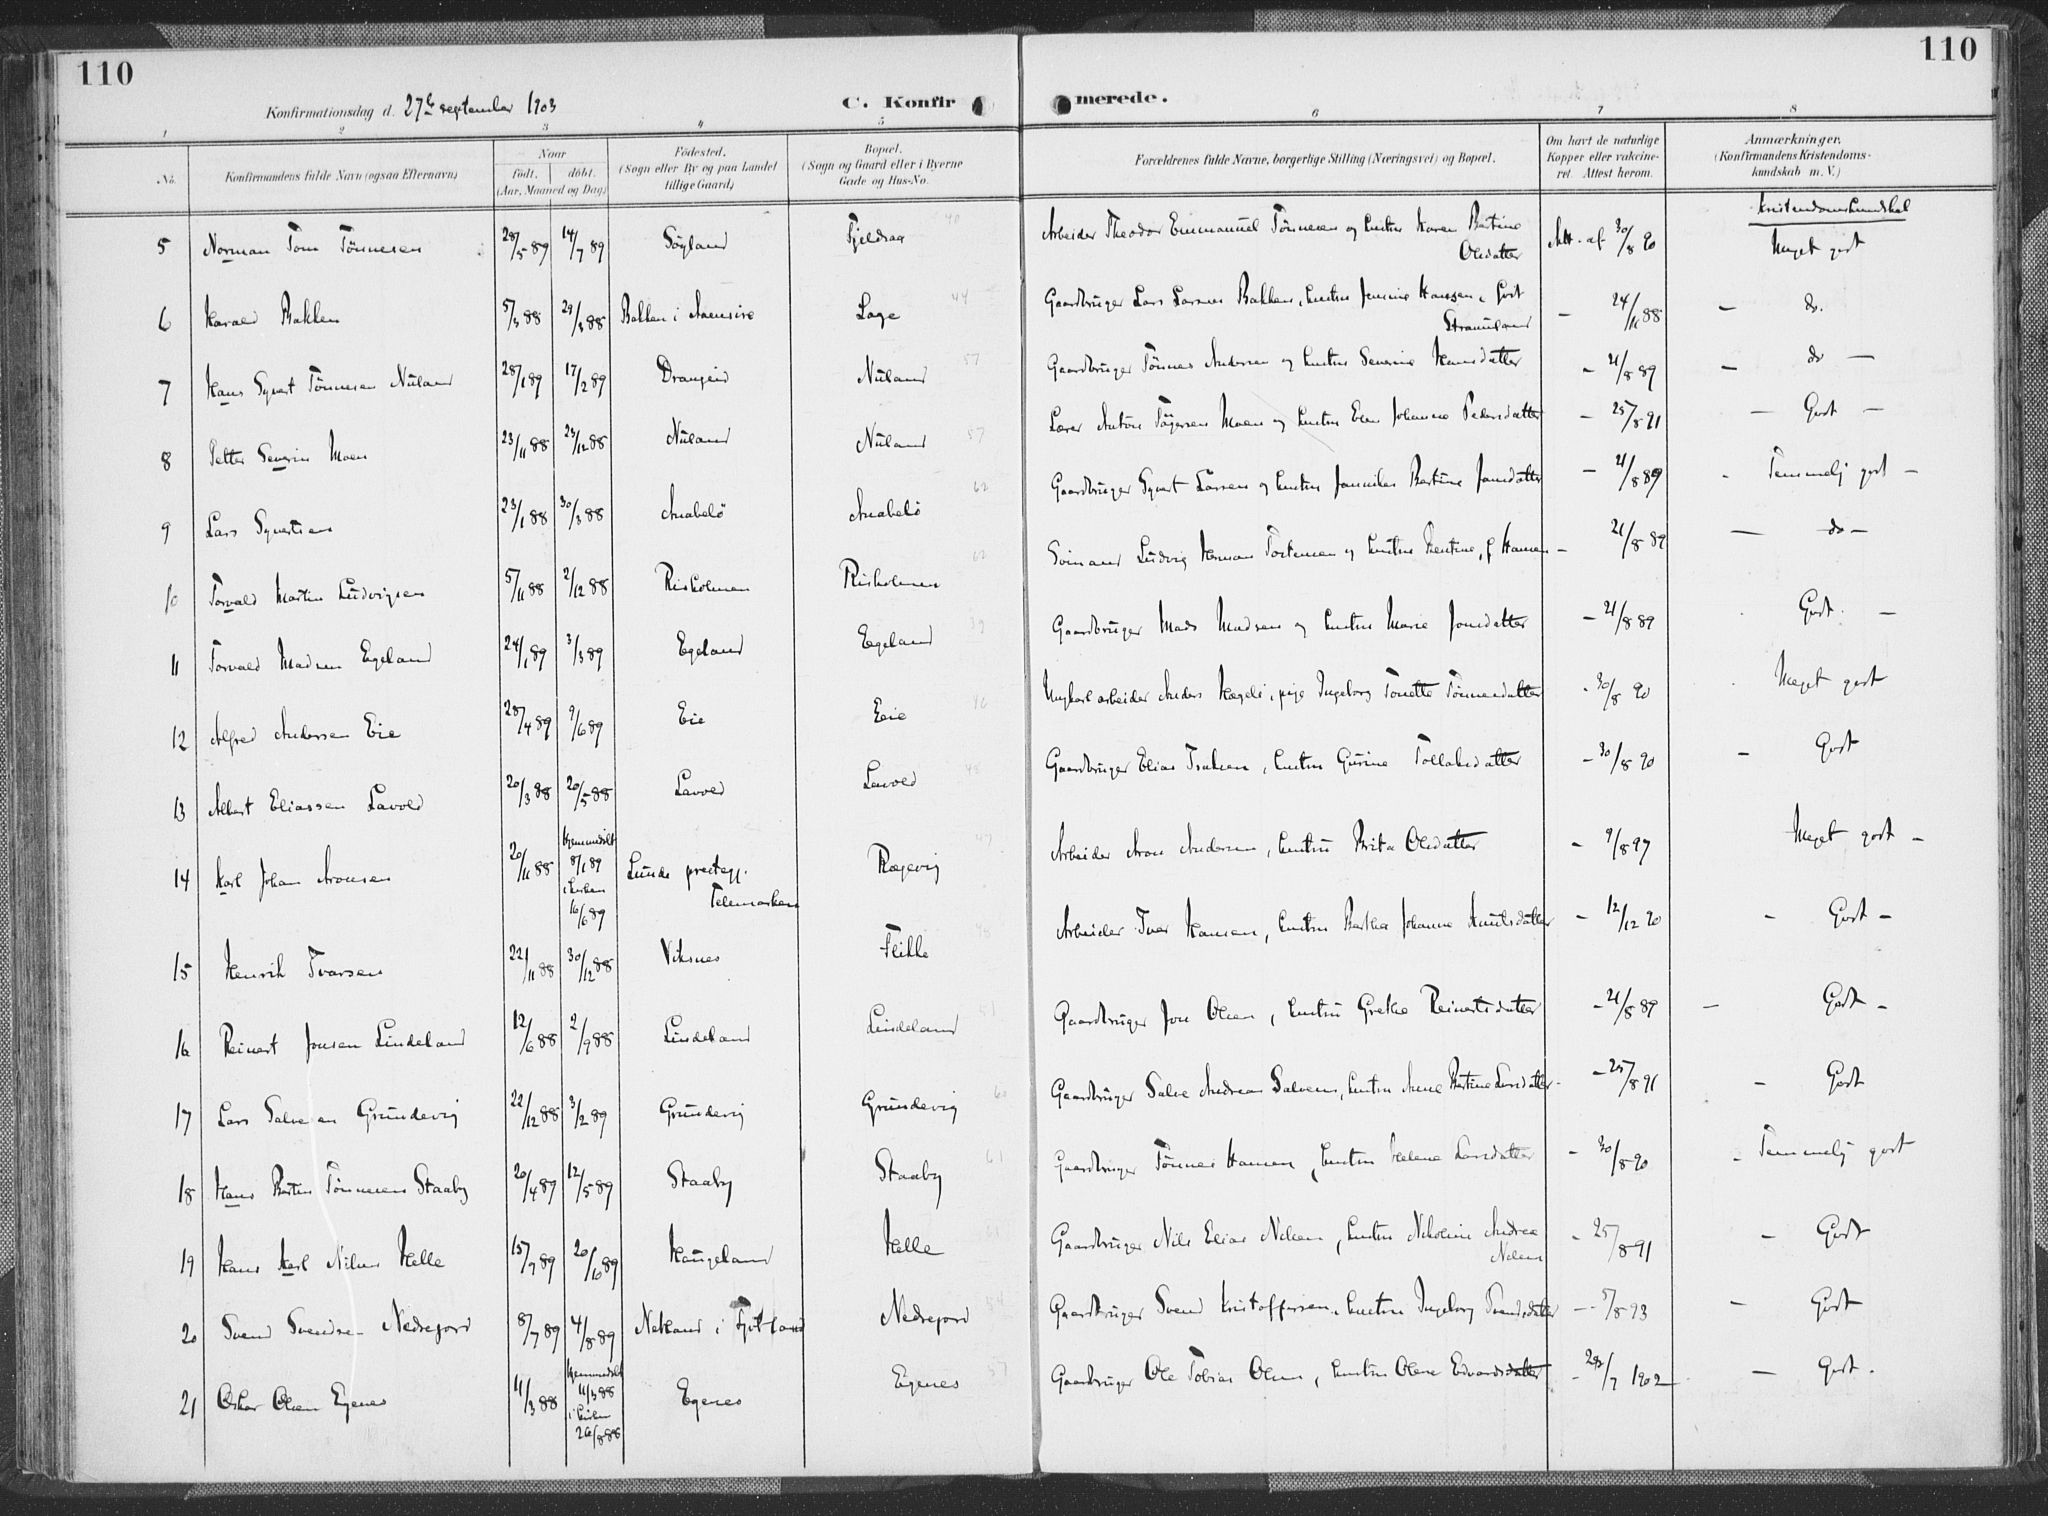 110
110
Konfirmationsdag d. 27de september 1903
C. Konfirmerede.
1 2 3 4 5 6 7 8
No.
Konfirmandens fulde Navn (ogsaa Efternavn)
Naar
födt. döbt.
(Aar, Maaned og Dag)
Födested.
(Sogn eller By og paa Landet
tillige Gaard)
Bopæl.
(Sogn og Gaard eller i Byerne
Gade og Hus-No.
Forældrenes fulde Navne, borgerlige Stilling (Næringsvei) og Bopæl.
Om havt de naturlige
Kopper eller vakcine-
ret. Attest herom.
Anmærkninger.
(Konfirmandens Kristendoms-
kundskab m. V.)
Kristendomskundskab
5 Norman Tom Tönnesen 28/5 89 14/7 89 Söyland Fjeldsaa 40 Arbeider Theodor Emmanuel Tönnesen og hustru Karen Bertine Olsdatter Att. af 30/8 90 Meget godt
6 Harald Bakken 5/3 88 29/3 88 Bakken i Aaensire Lage 44 Gaardbruger Lars Larsen Bakken, hustru Jensine Hansen, födt – 24/11 88 – do.
7 Hans Syvert Tönnesen Nuland 28/1 89 17/2 89 Drangeid Nuland 57 Gaardbruger Tönnes Andersen og hustru Severine Hansdatter – 21/8 89 – do –
8 Petter Severin Moen 23/11 88 23/12 88 Nuland Nuland 57 Lærer Anton Tögersen Moen og hustru Elen Johanne Pedersdatter – 25/8 91 – Godt –
9 Lars Syvertsen 23/1 88 30/3 88 Anabelö Anabelö 62 Gaardbruger Syvert Larsen og hustru Jannikes Bertine Jansdatter – 21/8 89 - Temmelig godt –
10 Torvald Martin Ludvigsen 5/11 88 2/12 88 Risholmen Risholmen 62 Sömand Ludvig Herman Torkensen og hustru Bentine, f. Hansen – 21/8 89 – do –
11 Torvald Madsen Egeland 24/1 89 3/3 89 Egeland Egeland 39 Gaardbruger Mads Madsen og hustru Marie Jonsdatter – 21/8 89 Godt. –
12 Alfred Andersen Eie 28/4 89 9/6 89 Eie Eie 46 Ungkarl arbeider Anders Hægeli, pige Ingeborg Tonette Tönnesdatter - 30/8 90 Meget godt
13 Albert Eliassen Lavold 20/3 88 20/5 88 Lavold Lavold 48 Gaardbruger Elias Isaksen, hustru Gurine Tollaksdatter – 30/8 90 – Godt
14 Karl Johan Aronsen 20/11 88 Hjemmedöbt 8/1 89 i kirken 16/6 89 Lunde prestegj. Telemarken Rægevig 47 Arbeider Aron Andersen, hustru Brita Olsdatter - 9/8 97 Meget godt –
15 Henrik Ivarsen 22/11 88 30/12 88 Viksnes Flikke 48 Arbeider Ivar Hansen, hustru Bertha Johanne Knutsdatter – 12/12 90 – Godt –
16 Reinert Jonsen Lindeland 12/6 88 2/9 88 Lindeland Lindeland 51 Gaardbruger Jon Olsen, hustru Grethe Reinertsdatter – 21/8 89 – Godt –
17 Lars Salvesen Grundevig 22/12 88 3/2 89 Grundevig Grundevig 60 Gaardbruger Salve Andreas Salvesen, hustru Anne Bertine Larsdatter – 25/8 91 – Godt
18 Hans Bertin Tönnesen Staaby 20/4 89 12/5 89 Staaby Staaby 61 Gaardbruger Tönnes Hansen, hustru Helene Larsdatter – 30/8 90 – Temmelig godt
19 Hans Karl Nilsen Helle 15/9 89 20/10 89 Haugeland Helle 61 Gaardbruger Nils Elias Nilsen, hustru Nikoline Andrea Nilsen – 25/8 91 – Godt
20 Svend Svendsen Nedrejord 8/7 89 4/8 89 Netland i Fjotland Nedrejord 54 Gaardbruger Svend Kristoffersen, hustru Ingeborg Svendsdatter – 5/8 93 – Godt
21 Oskar Olsen Egenes 11/3 88 Hjemmedöbt 11/3 88 i kirken 26/8 88 Egenes Egenes 57 Gaardbruger Ole Tobias Olsen, hustru Olene Edvardsdatter – 28/7 1902 – Godt.